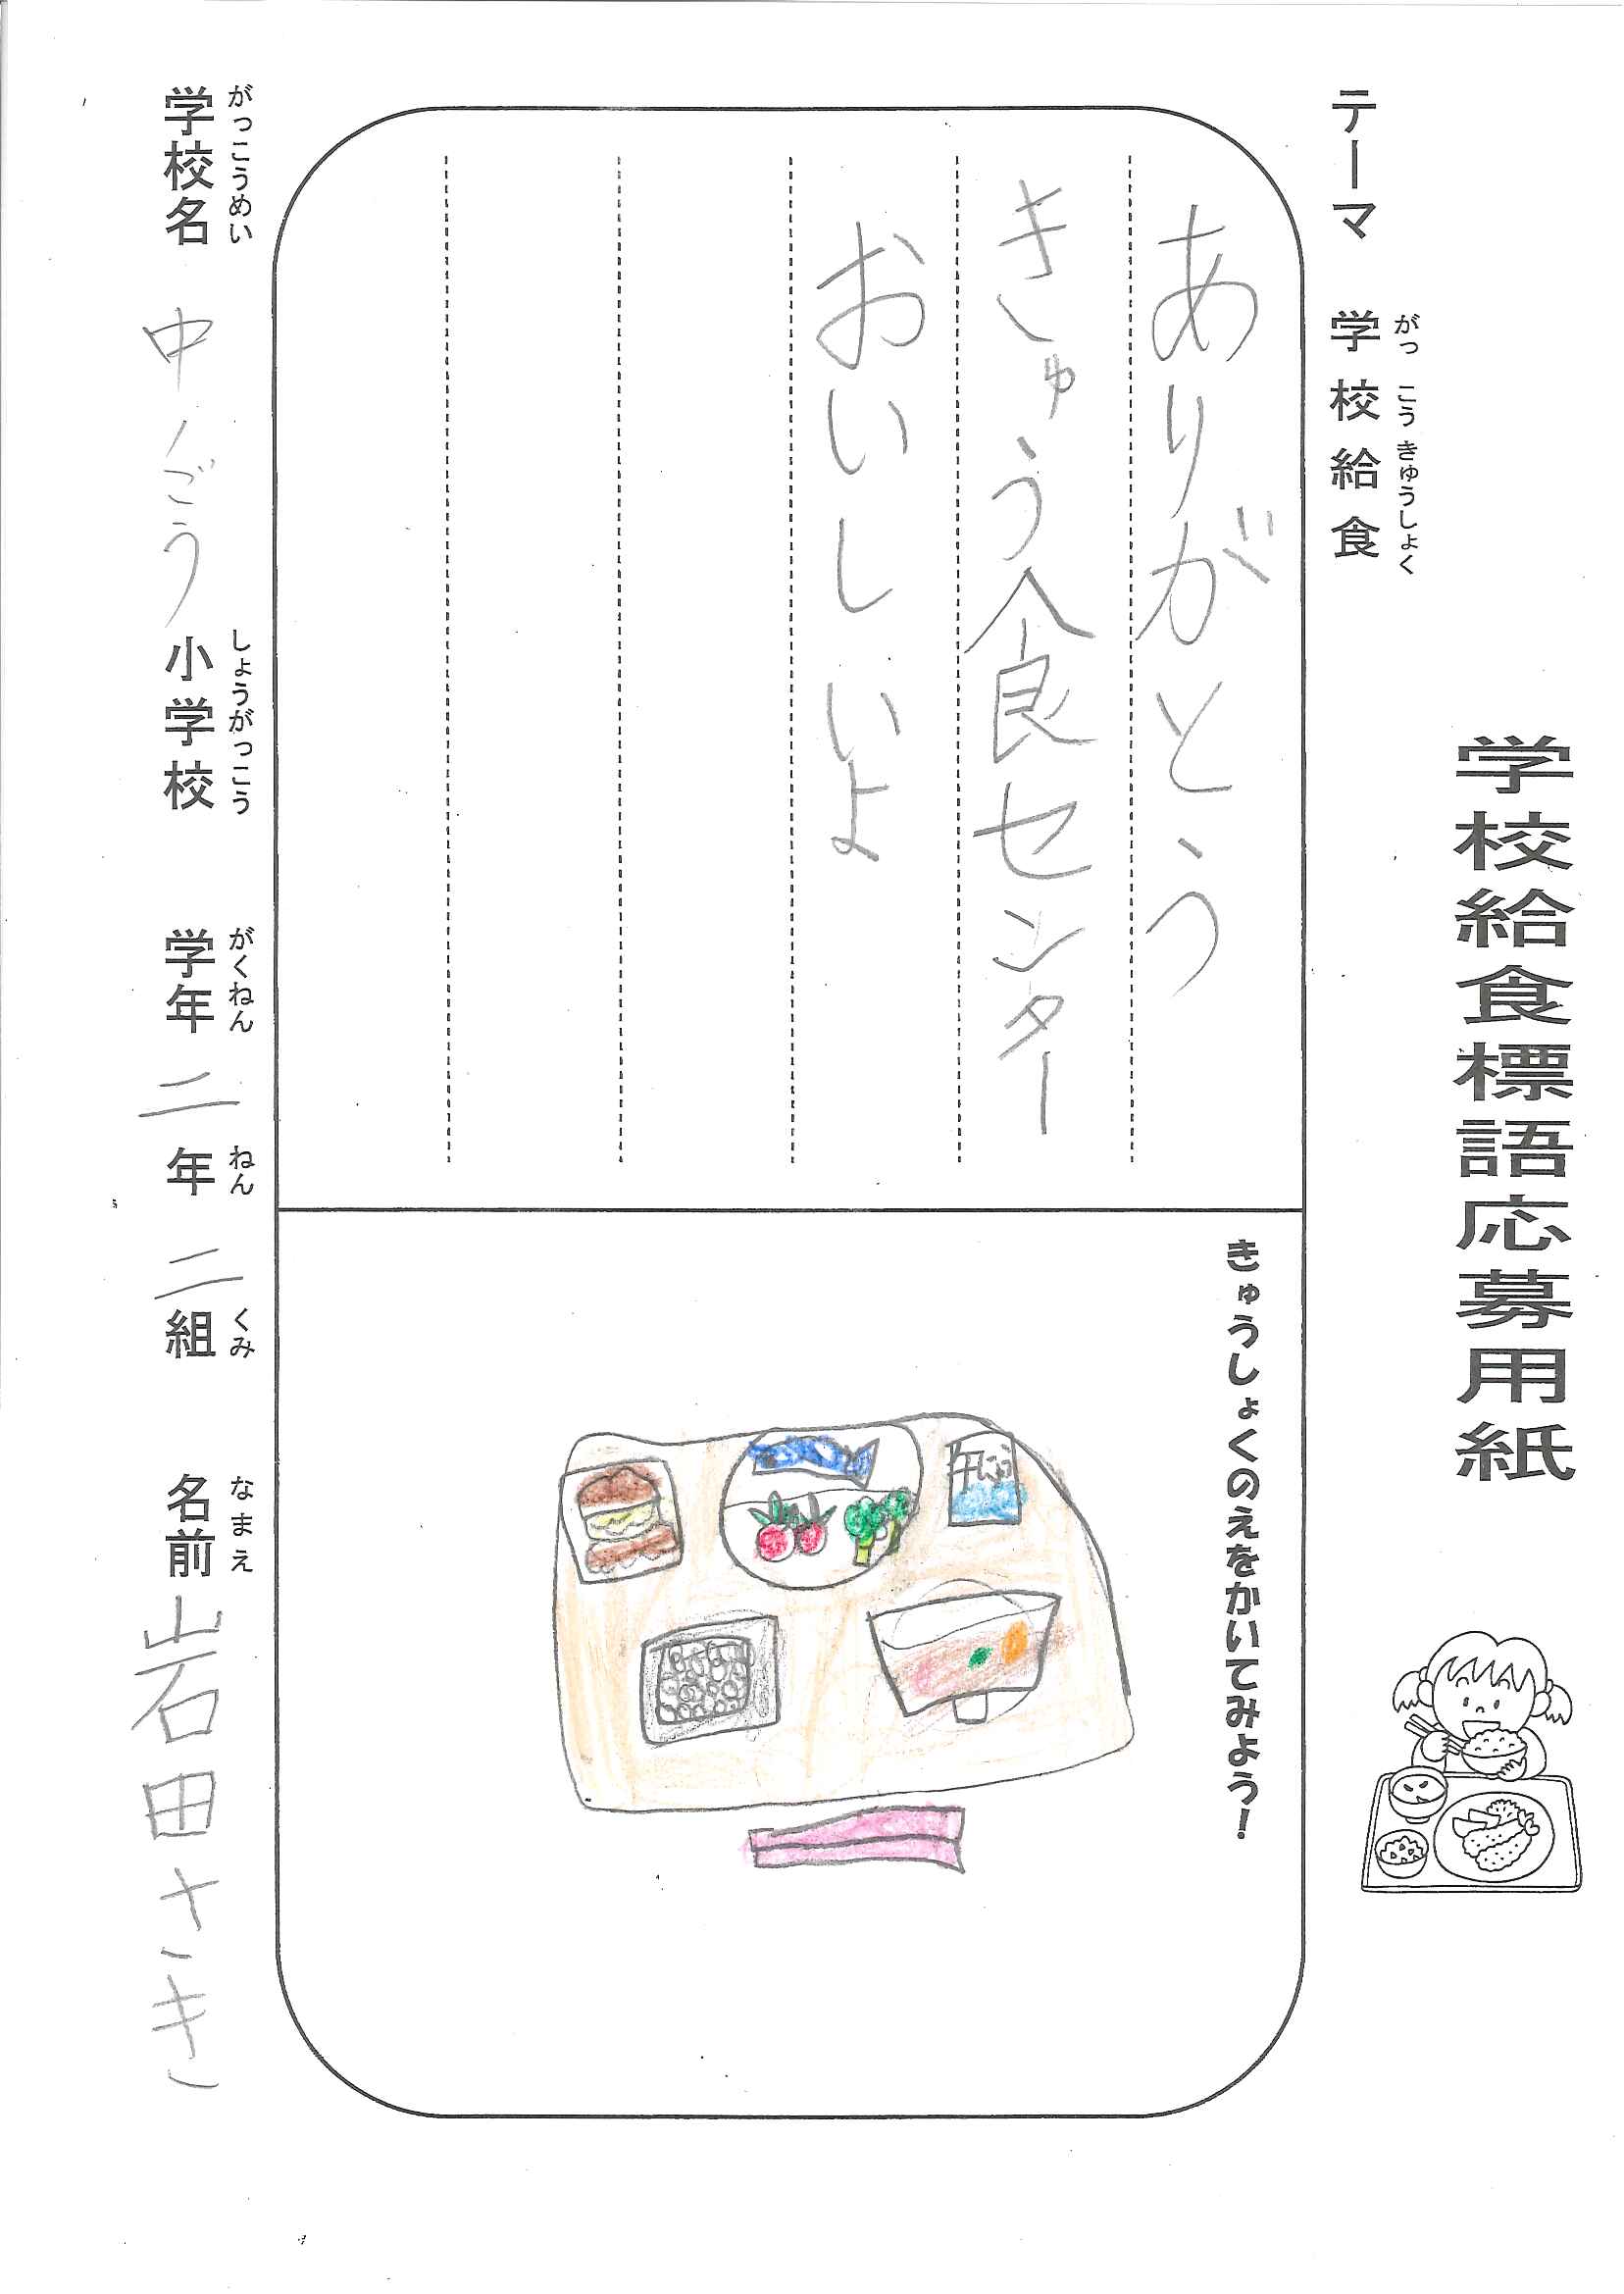 学校給食標語応募用紙
テーマ 学校給食
がっこうきゅうしょく
ありがとう
きゅう食センター
おいしいよ
きゅうしょくのえをかいてみよう!
牛にゅう
がっこうめい しょうがっこう がくねん ねん くみ なまえ
学校名 中ごう 小学校 学年 二 年 二 組 名前 岩田さき